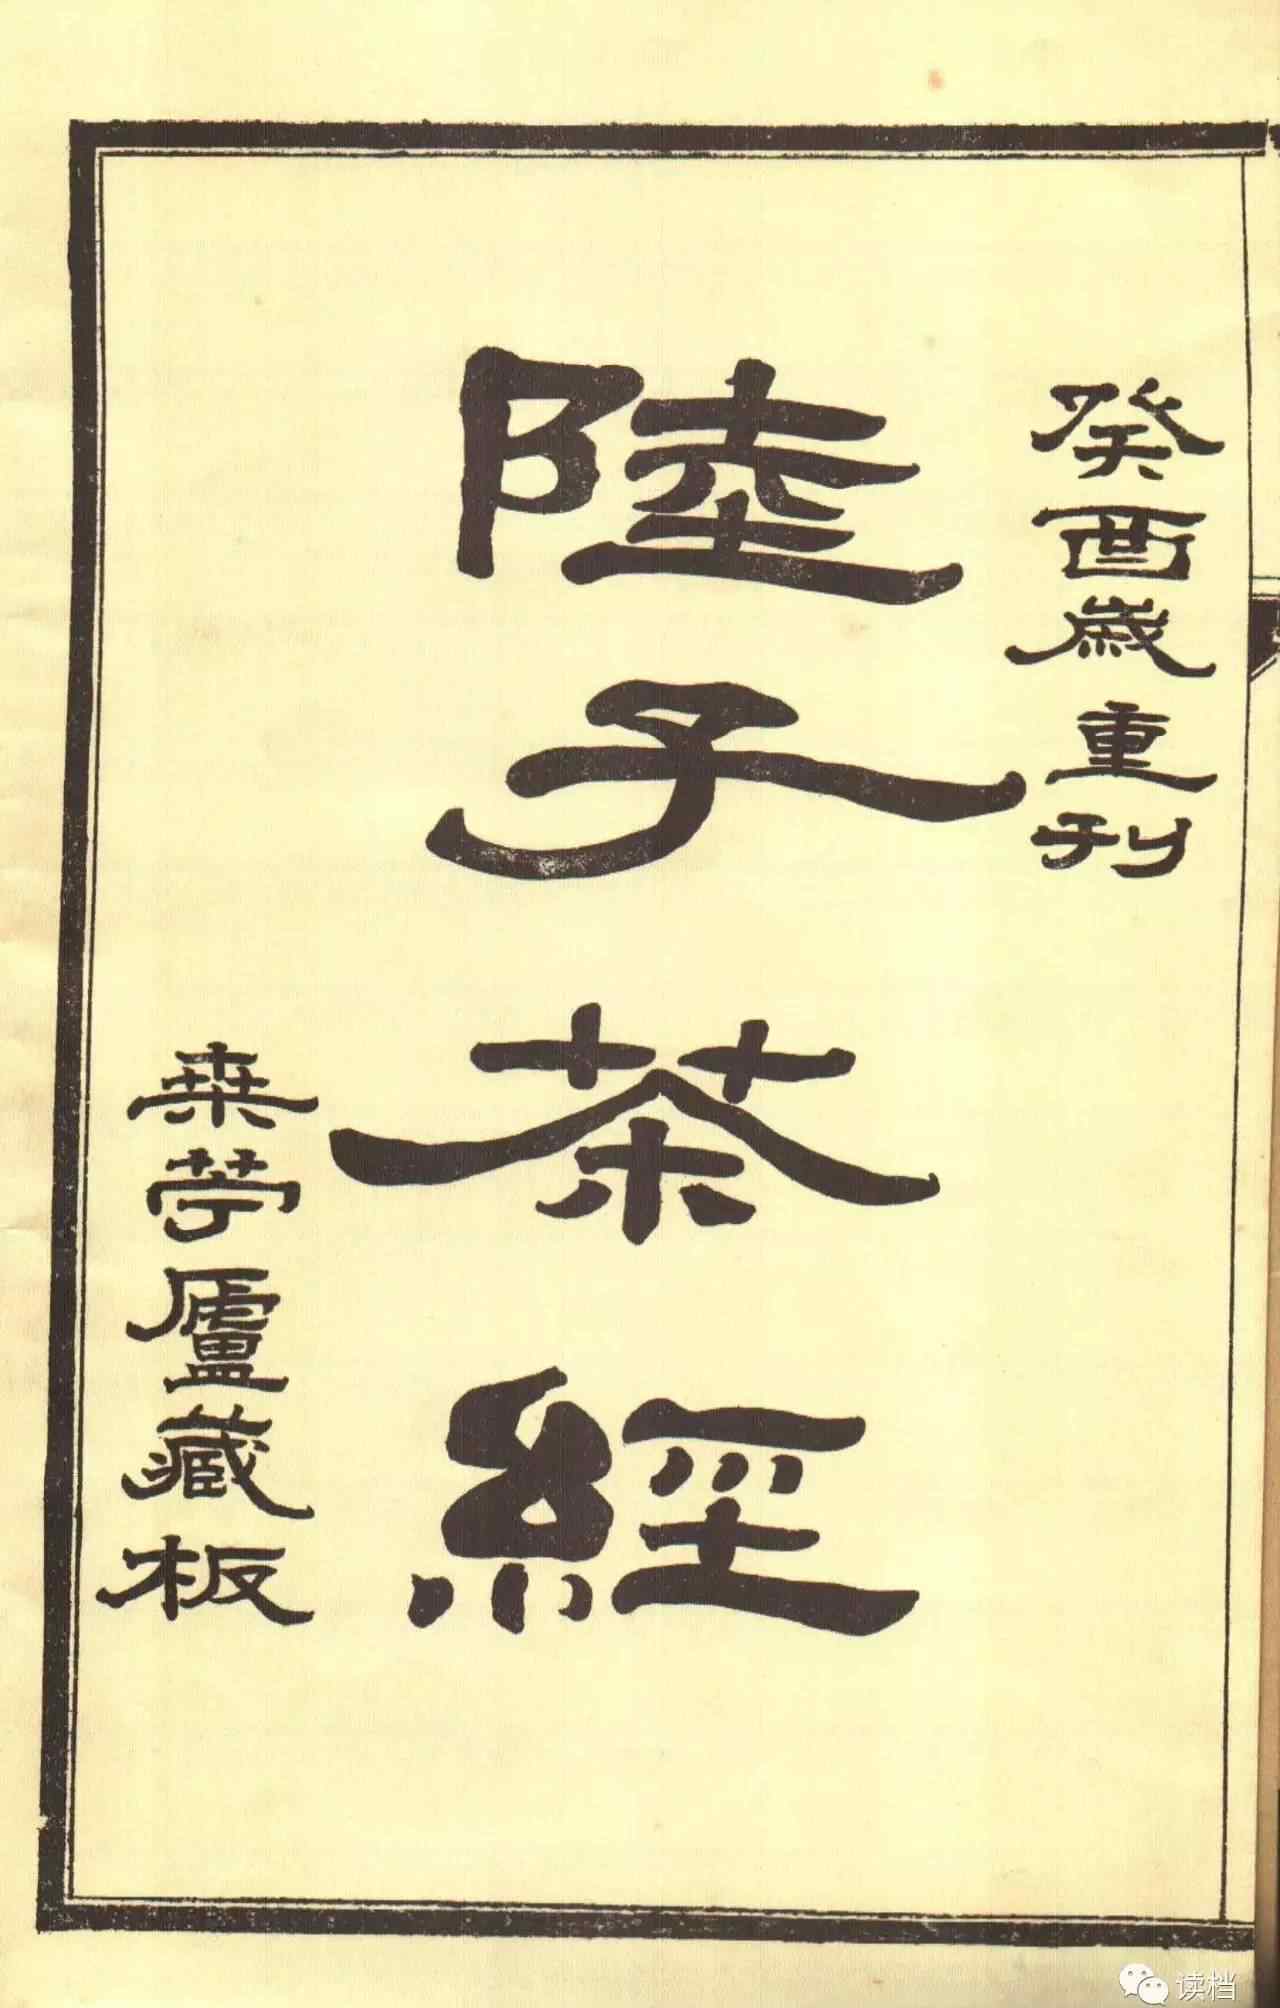 癸酉歲重刊
陸子茶經
桒苧廬藏板
读档